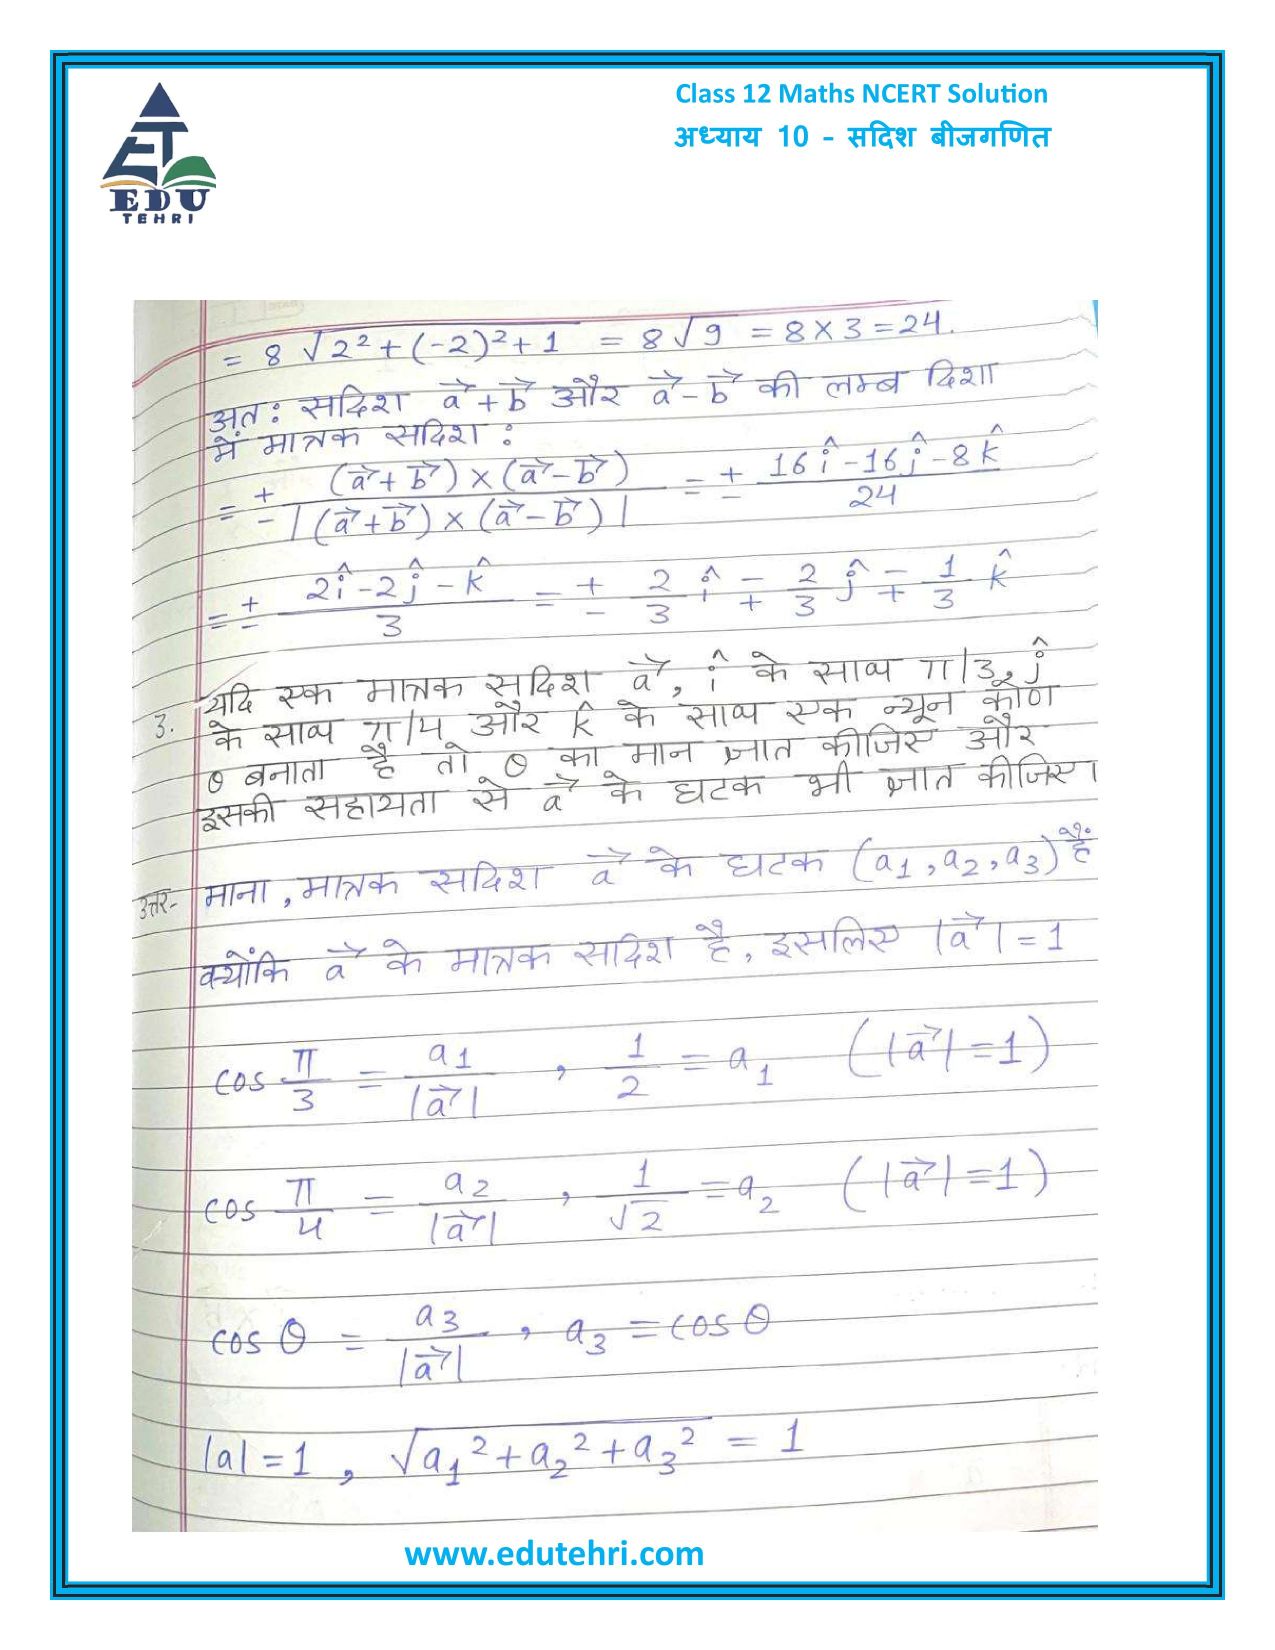 Class 12 Maths NCERT Solution
अध्याय 10 - सदिश बीजगणित
EDU
TEHRI
= 8 √(2² + (-2)² + 1) = 8√9 = 8 × 3 = 24.
अतः सदिश a⃗ + b⃗ और a⃗ - b⃗ की लम्ब दिशा
में मात्रक सदिश :
= ± (a⃗ + b⃗) × (a⃗ - b⃗) / |(a⃗ + b⃗) × (a⃗ - b⃗)| = ± (16î - 16ĵ - 8k̂) / 24
= ± (2î - 2ĵ - k̂) / 3 = ± 2/3 î ∓ 2/3 ĵ ∓ 1/3 k̂
3. यदि एक मात्रक सदिश a⃗, î के साथ π/3, ĵ
के साथ π/4 और k̂ के साथ एक न्यून कोण
θ बनाता है तो θ का मान ज्ञात कीजिए और
इसकी सहायता से a⃗ के घटक भी ज्ञात कीजिए।
उत्तर- माना, मात्रक सदिश a⃗ के घटक (a₁, a₂, a₃) हैं
क्योंकि a⃗ के मात्रक सदिश है, इसलिए |a⃗| = 1
cos π/3 = a₁/|a⃗| , 1/2 = a₁ (|a⃗| = 1)
cos π/4 = a₂/|a⃗| , 1/√2 = a₂ (|a⃗| = 1)
cos θ = a₃/|a⃗| , a₃ = cos θ
|a| = 1 , √(a₁² + a₂² + a₃²) = 1
www.edutehri.com